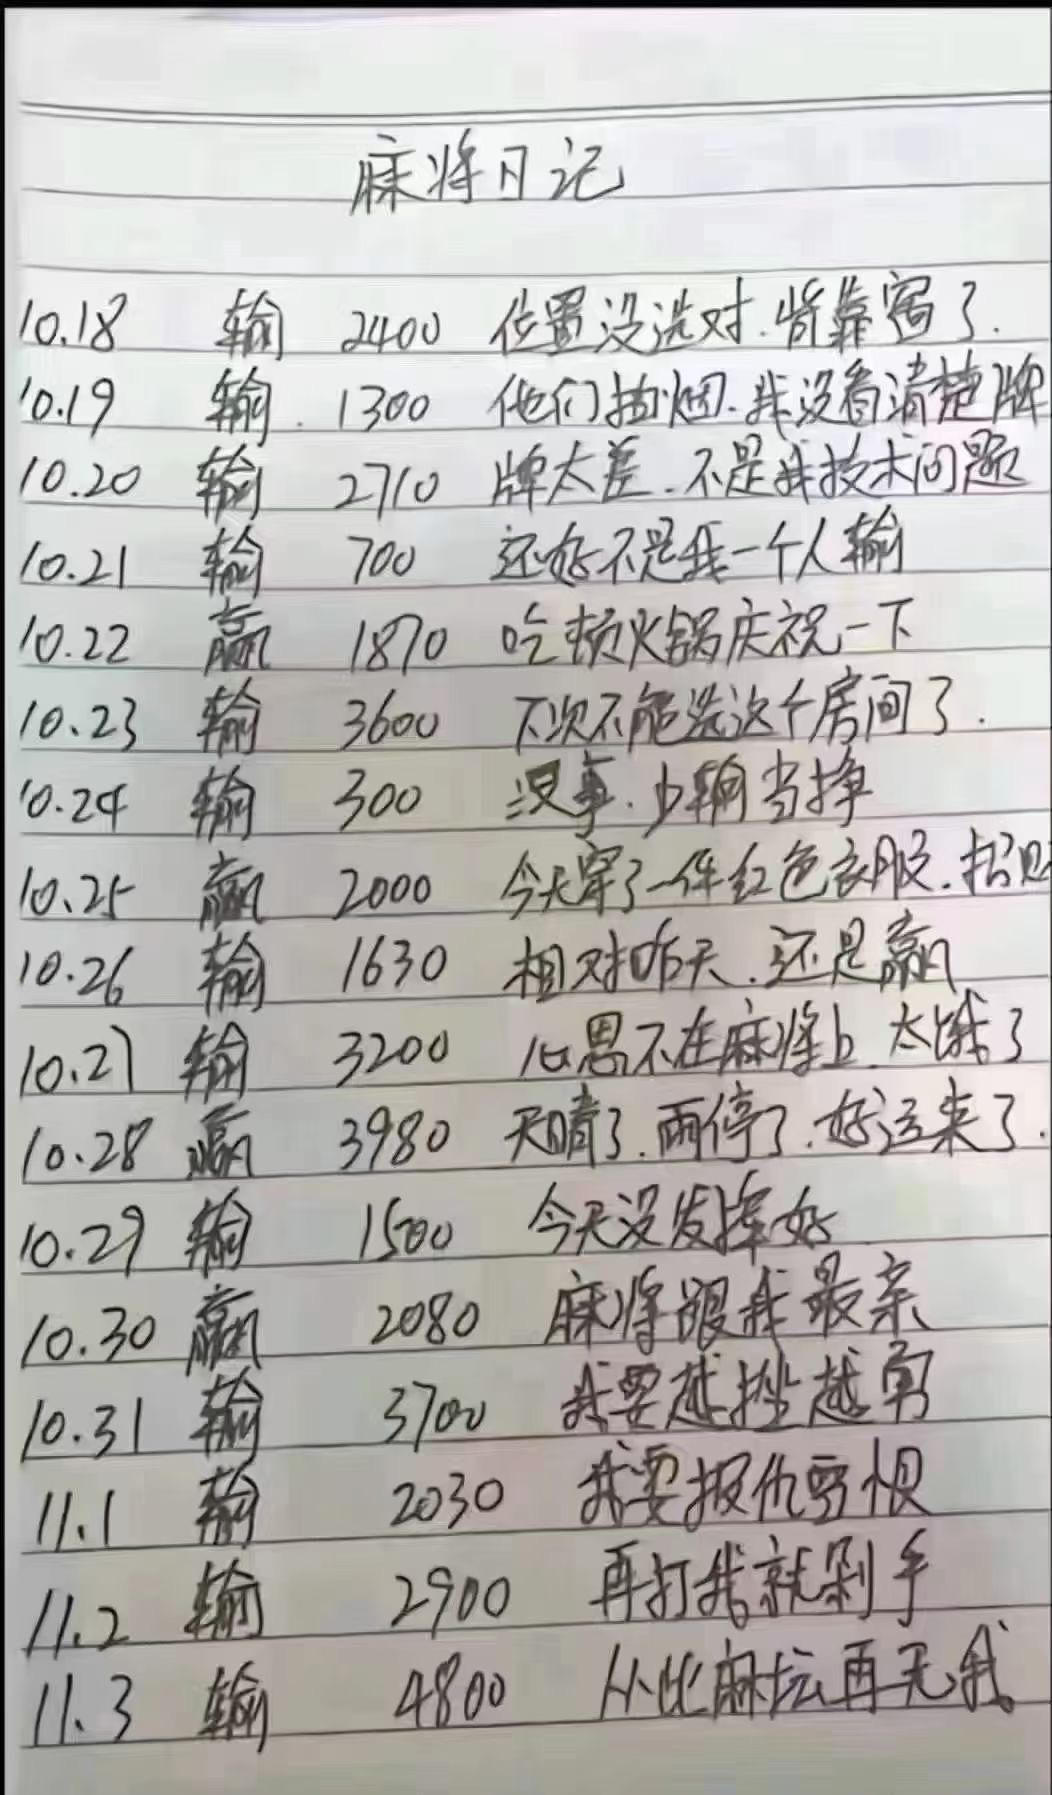 麻将日记
10.18 输 2400 位置没选对.背靠窗了.
10.19 输. 1300 他们抽烟.我没看清楚牌
10.20 输 2710 牌太差.不是我技术问题
10.21 输 700 还好不是我一个人输
10.22 赢 1870 吃顿火锅庆祝一下
10.23 输 3600 下次不能选这个房间了.
10.24 输 300 没事.少输当挣
10.25 赢 2000 今天穿了一件红色衣服.招财
10.26 输 1630 相对昨天.还是赢
10.27 输 3200 心思不在麻将上.太饿了
10.28 赢 3980 天晴了.雨停了.好运来了.
10.29 输 1500 今天没发挥好
10.30 赢 2080 麻将跟我最亲
10.31 输 3700 我要越挫越勇
11.1 输 2030 我要报仇雪恨
11.2 输 2900 再打我就剁手
11.3 输 4800 从此麻坛再无我